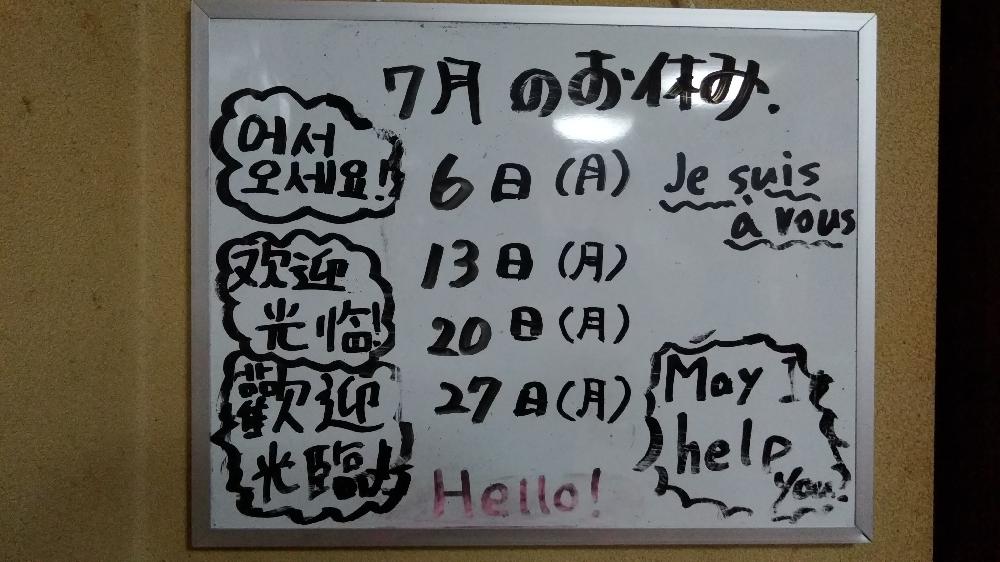 7月のお休み.
어서
오세요!!
6日(月)
Je suis
à vous
欢迎
光临!
13日(月)
20日(月)
歡迎
光臨
27日(月)
May I
help
you!
Hello!